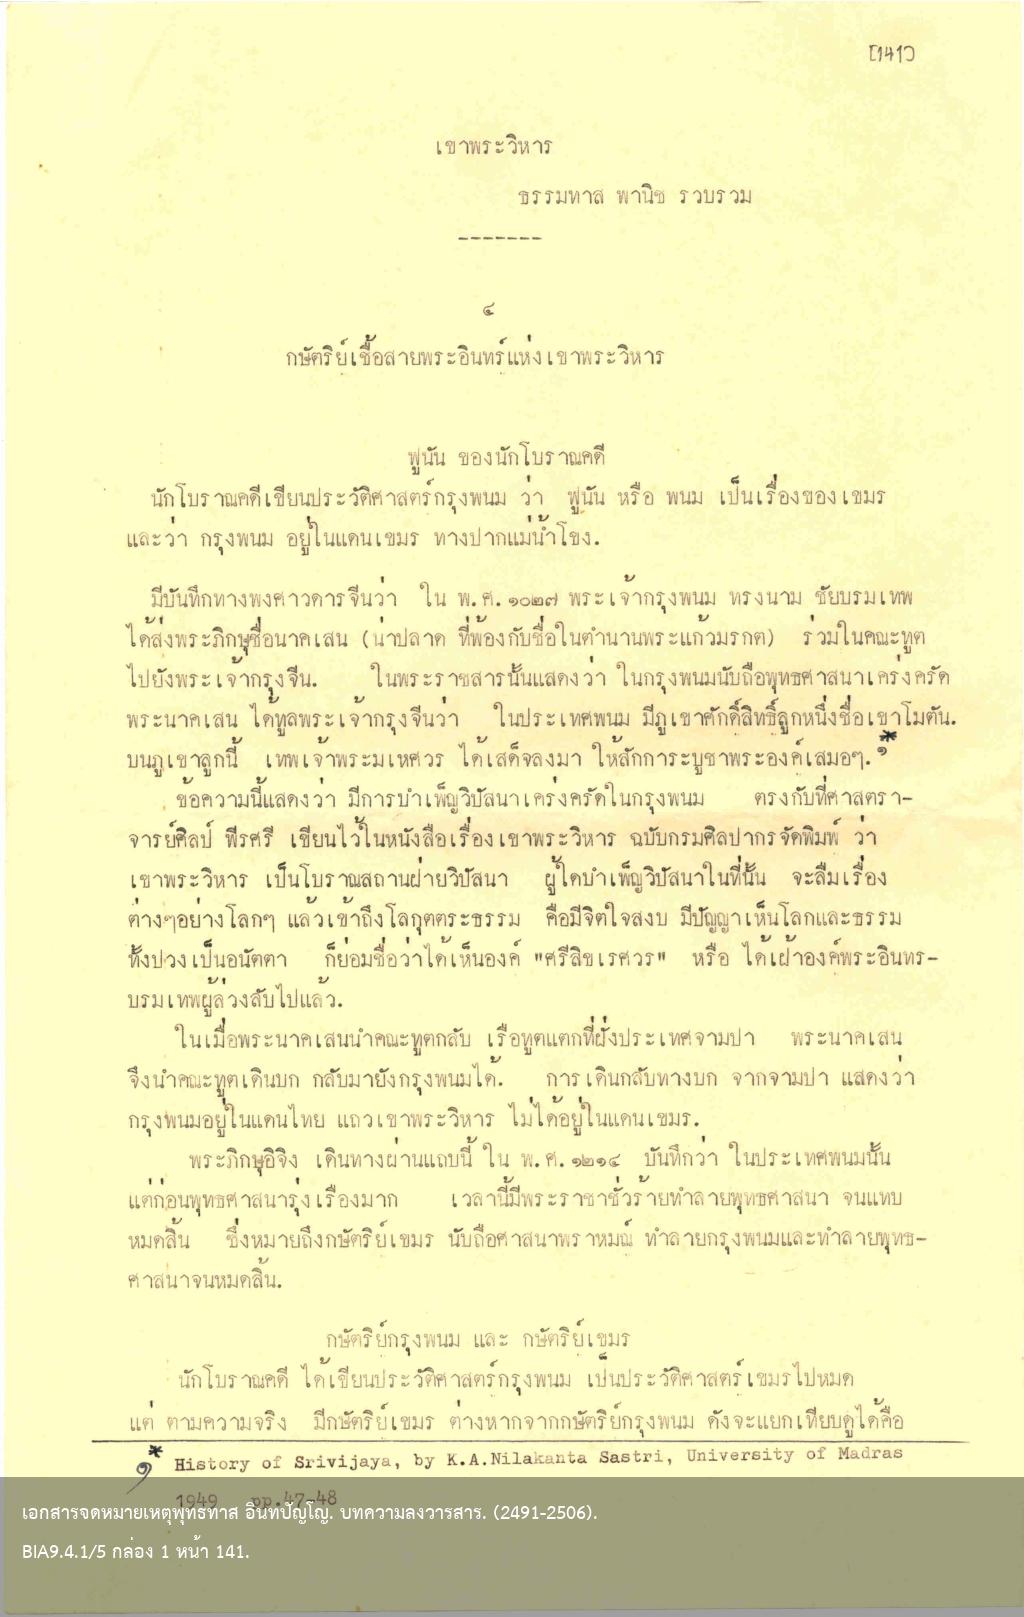 [141]
เขาพระวิหาร
ธรรมทาส พานิช รวบรวม
-------
๔
กษัตริย์เชื้อสายพระอินทร์แห่งเขาพระวิหาร
ฟูนัน ของนักโบราณคดี
นักโบราณคดีเขียนประวัติศาสตร์กรุงพนม ว่า ฟูนัน หรือ พนม เป็นเรื่องของเขมร
และว่า กรุงพนม อยู่ในแดนเขมร ทางปากแม่น้ำโขง.
มีบันทึกทางพงศาวดารจีนว่า ใน พ.ศ.๑๐๒๗ พระเจ้ากรุงพนม ทรงนาม ชัยบรมเทพ
ได้ส่งพระภิกษุชื่อนาคเสน (น่าปลาด ที่พ้องกับชื่อในตำนานพระแก้วมรกต) ร่วมในคณะทูต
ไปยังพระเจ้ากรุงจีน. ในพระราชสารนั้นแสดงว่า ในกรุงพนมนับถือพุทธศาสนาเคร่งครัด
พระนาคเสน ได้ทูลพระเจ้ากรุงจีนว่า ในประเทศพนม มีภูเขาศักดิ์สิทธิ์ลูกหนึ่งชื่อเขาโมตัน.
บนภูเขาลูกนี้ เทพเจ้าพระมเหศวร ได้เสด็จลงมา ให้สักการะบูชาพระองค์เสมอๆ.๑*
ข้อความนี้แสดงว่า มีการบำเพ็ญวิปัสนาเคร่งครัดในกรุงพนม ตรงกับที่ศาสตรา-
จารย์ศิลป์ พีรศรี เขียนไว้ในหนังสือเรื่องเขาพระวิหาร ฉบับกรมศิลปากรจัดพิมพ์ ว่า
เขาพระวิหาร เป็นโบราณสถานฝ่ายวิปัสนา ผู้ใดบำเพ็ญวิปัสนาในที่นั้น จะลืมเรื่อง
ต่างๆอย่างโลกๆ แล้วเข้าถึงโลกุตตระธรรม คือมีจิตใจสงบ มีปัญญาเห็นโลกและธรรม
ทั้งปวงเป็นอนัตตา ก็ย่อมชื่อว่าได้เห็นองค์ "ศรีสิขเรศวร" หรือ ได้เฝ้าองค์พระอินทร-
บรมเทพผู้ล่วงลับไปแล้ว.
ในเมื่อพระนาคเสนนำคณะทูตกลับ เรือทูตแตกที่ฝั่งประเทศจามปา พระนาคเสน
จึงนำคณะทูตเดินบก กลับมายังกรุงพนมได้. การเดินกลับทางบก จากจามปา แสดงว่า
กรุงพนมอยู่ในแดนไทย แถวเขาพระวิหาร ไม่ได้อยู่ในแดนเขมร.
พระภิกษุอิจิง เดินทางผ่านแถบนี้ ใน พ.ศ.๑๒๑๔ บันทึกว่า ในประเทศพนมนั้น
แต่ก่อนพุทธศาสนารุ่งเรืองมาก เวลานี้มีพระราชาชั่วร้ายทำลายพุทธศาสนา จนแทบ
หมดสิ้น ซึ่งหมายถึงกษัตริย์เขมร นับถือศาสนาพราหมณ์ ทำลายกรุงพนมและทำลายพุทธ-
ศาสนาจนหมดสิ้น.
กษัตริย์กรุงพนม และ กษัตริย์เขมร
นักโบราณคดี ได้เขียนประวัติศาสตร์กรุงพนม เป็นประวัติศาสตร์เขมรไปหมด
แต่ ตามความจริง มีกษัตริย์เขมร ต่างหากจากกษัตริย์กรุงพนม ดังจะแยกเทียบดูได้คือ
๑* History of Srivijaya, by K.A.Nilakanta Sastri, University of Madras
1949 pp.47-48
เอกสารจดหมายเหตุพุทธทาส อินทปัญโญ. บทความลงวารสาร. (2491-2506).
BIA9.4.1/5 กล่อง 1 หน้า 141.